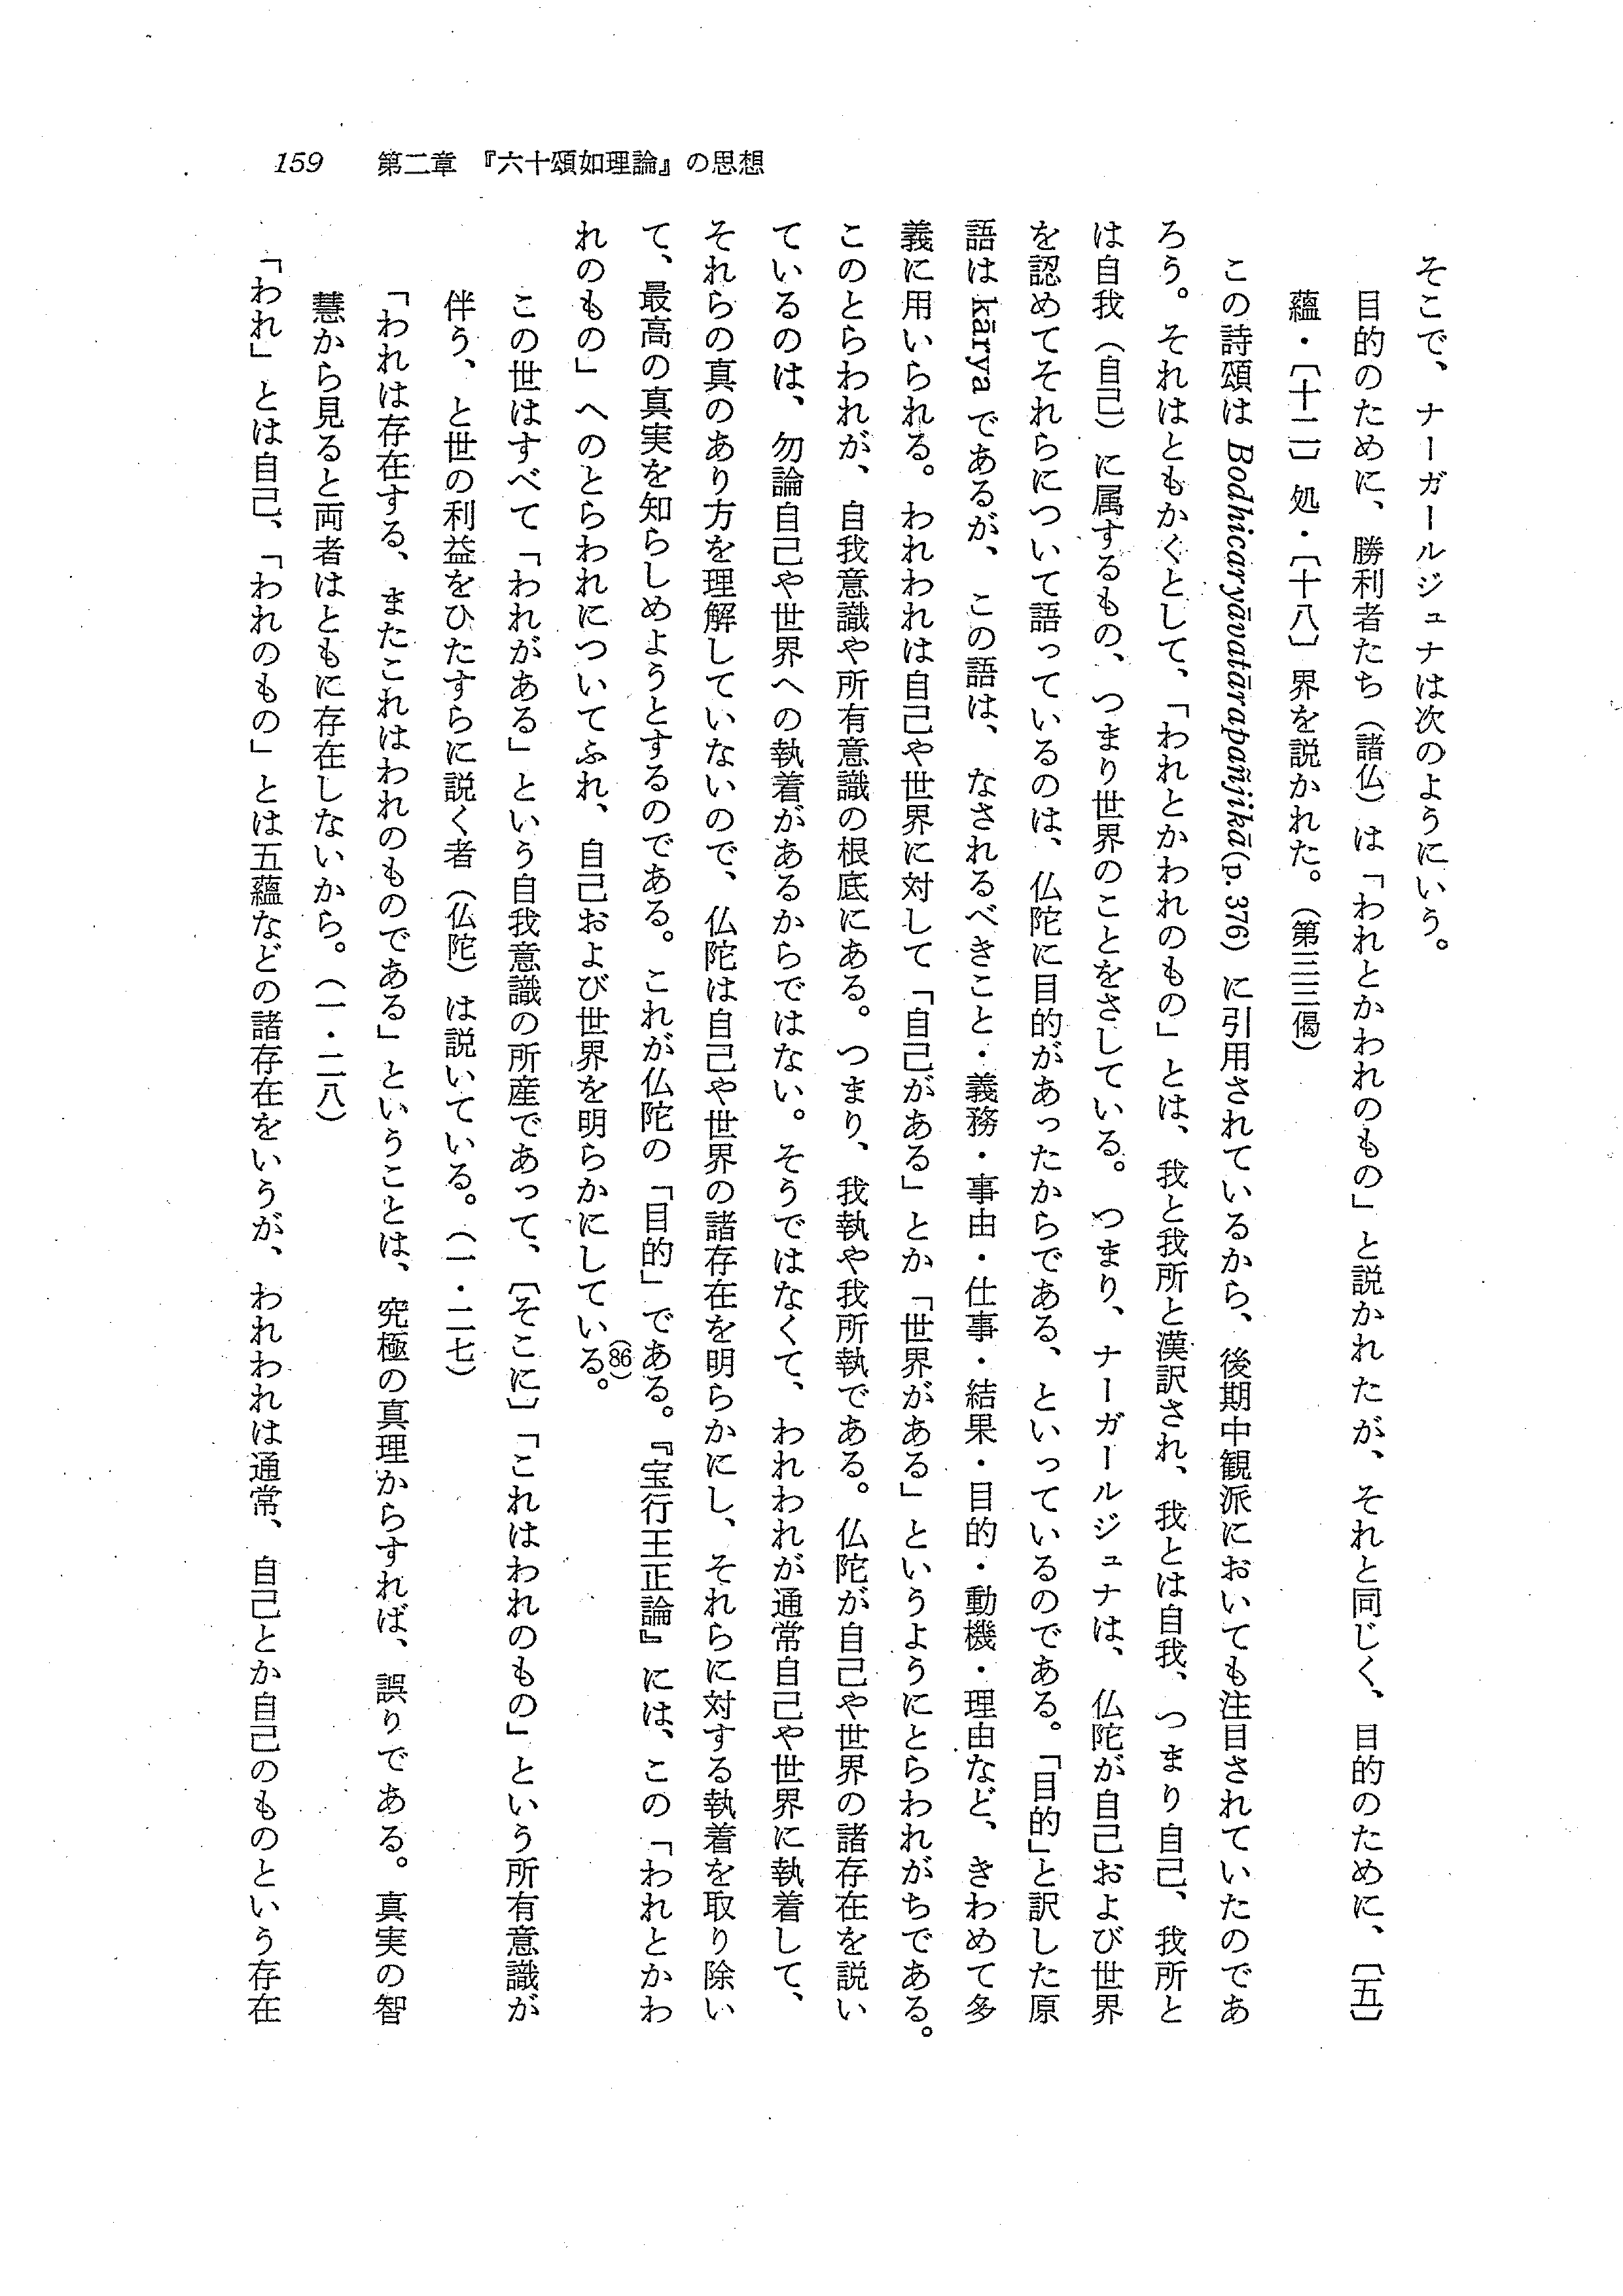 159　第二章　『六十頌如理論』の思想
そこで、ナーガールジュナは次のようにいう。
目的のために、勝利者たち（諸仏）は「われとかわれのもの」と説かれたが、それと同じく、目的のために、〔五〕
蘊・〔十二〕処・〔十八〕界を説かれた。（第三三偈）
この詩頌は Bodhicaryāvatārapañjikā (p. 376) に引用されているから、後期中観派においても注目されていたのであ
ろう。それはともかくとして、「われとかわれのもの」とは、我と我所と漢訳され、我とは自我、つまり自己、我所と
は自我（自己）に属するもの、つまり世界のことをさしている。つまり、ナーガールジュナは、仏陀が自己および世界
を認めてそれらについて語っているのは、仏陀に目的があったからである、といっているのである。「目的」と訳した原
語は kārya であるが、この語は、なされるべきこと・義務・事由・仕事・結果・目的・動機・理由など、きわめて多
義に用いられる。われわれは自己や世界に対して「自己がある」とか「世界がある」というようにとらわれがちである。
このとらわれが、自我意識や所有意識の根底にある。つまり、我執や我所執である。仏陀が自己や世界の諸存在を説い
ているのは、勿論自己や世界への執着があるからではない。そうではなくて、われわれが通常自己や世界に執着して、
それらの真のあり方を理解していないので、仏陀は自己や世界の諸存在を明らかにし、それらに対する執着を取り除い
て、最高の真実を知らしめようとするのである。これが仏陀の「目的」である。『宝行王正論』には、この「われとかわ
れのもの」へのとらわれについてふれ、自己および世界を明らかにしている。(86)
この世はすべて「われがある」という自我意識の所産であって、〔そこに〕「これはわれのもの」という所有意識が
伴う、と世の利益をひたすらに説く者（仏陀）は説いている。（一・二七）
「われは存在する、またこれはわれのものである」ということは、究極の真理からすれば、誤りである。真実の智
慧から見ると両者はともに存在しないから。（一・二八）
「われ」とは自己、「われのもの」とは五蘊などの諸存在をいうが、われわれは通常、自己とか自己のものという存在